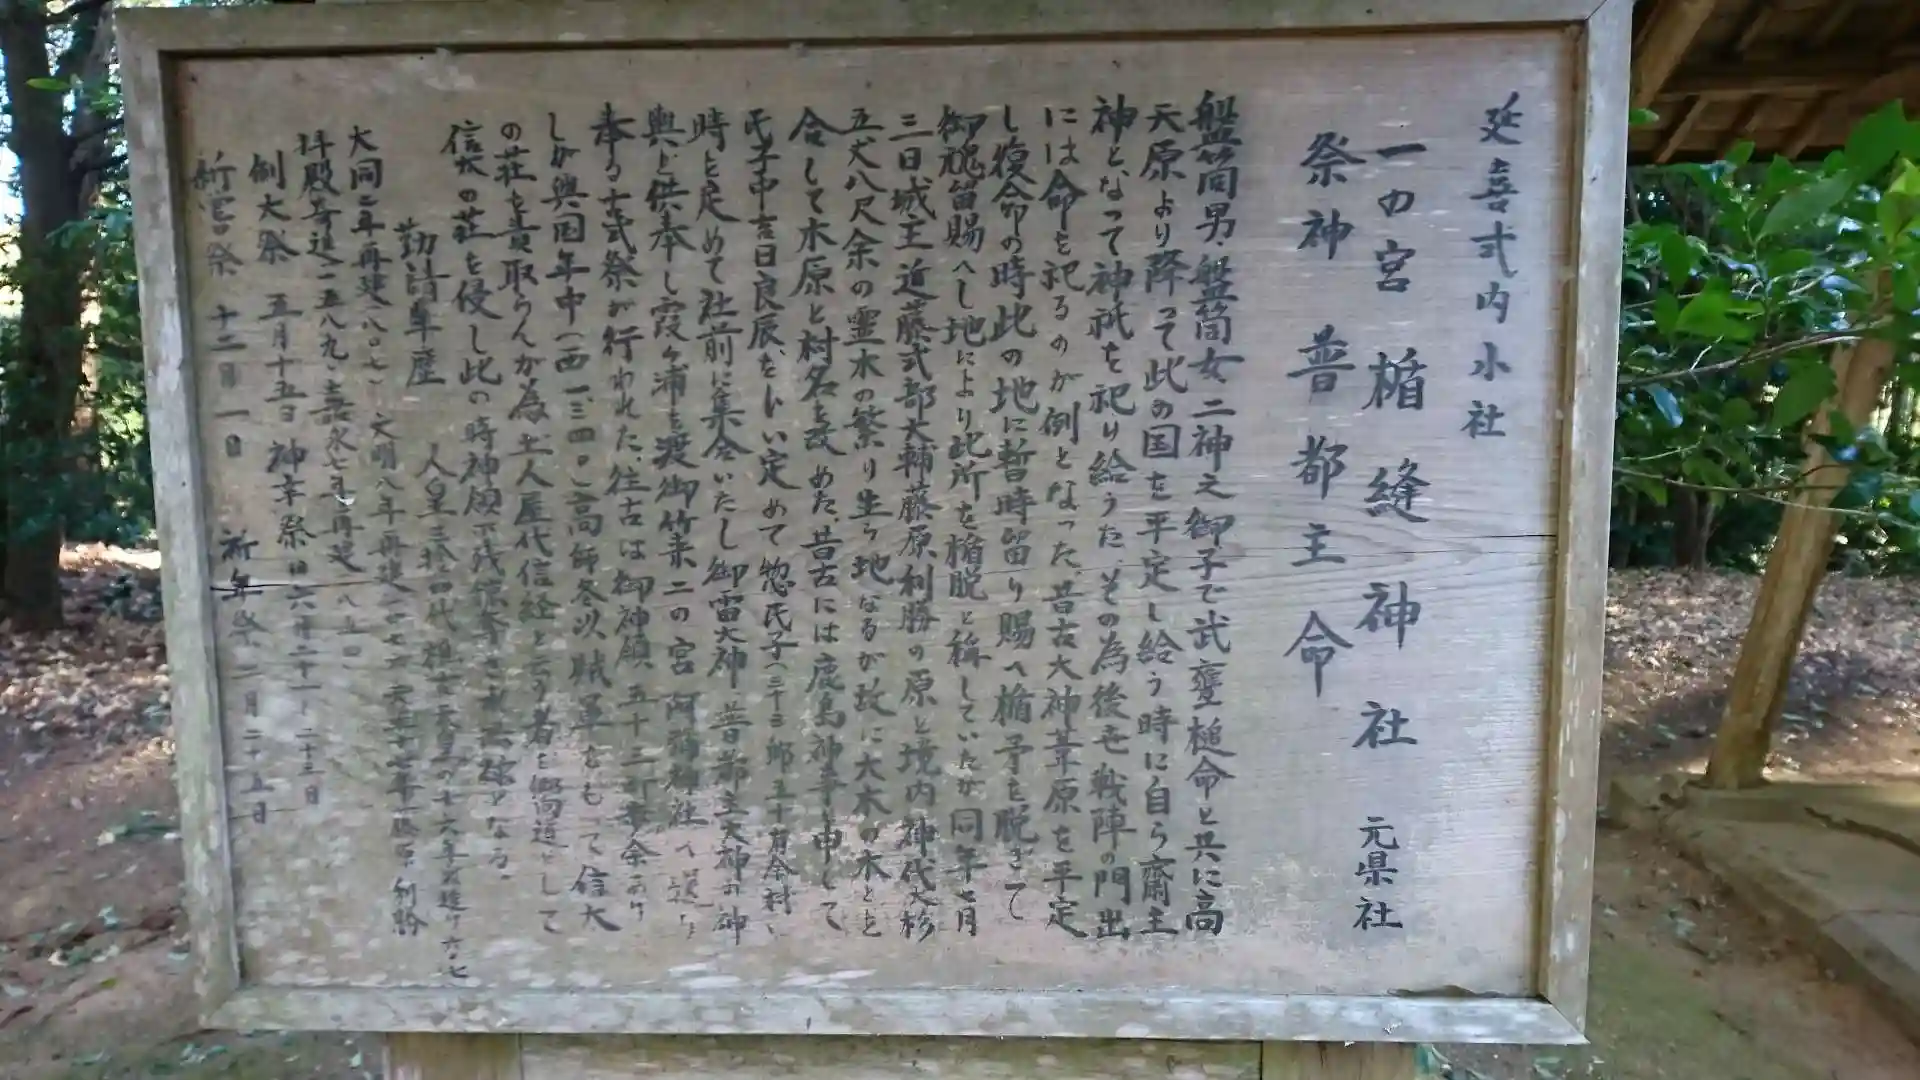 延喜式内小社
一の宮 楯縫神社 元県社
祭神 普都主命
盤筒男、盤筒女、二神之御子で武甕槌命と共に高
天原より降って此の国を平定し給う時に自ら齋主
神となって神祇を祀り給うた、その為後世戦陣の門出
には命を祀るのが例となった、昔古大神葦原を平定
し復命の時此の地に暫時留り賜へ楯矛を脱ぎて
御魂留賜へし地により此所を楯脱と称していたが同年七月
三日城主近藤式部大輔藤原利勝の原と境内神代大杉
五丈八尺余の霊木の繁り生る地なるが故に大木の木とを
合して木原と村名を改めた、昔古には鹿島神宮申して
氏子中吉日良辰、をトい定めて惣氏子(三十三郷五十有余村)
時を定めて社前に集合いたし御雷大神 普都主大神お神
輿を供奉し霞ヶ浦を渡御竹来二の宮 阿弥神社へ
奉る古式祭が行われた、往古は御神領五十三町歩余あり
しが興国年中(西一、三四〇)高師冬以賊軍をもって信太
の荘を責取らんが為土人屋代信経と云う者を郷導として
信太の荘を侵し此の時神領
勧請草歴 人皇三拾四代
大同二年再建(八〇七) 文明八年再建
拝殿寄進一五八九、嘉永七年再建
例大祭 五月十五日 神幸祭 旧六月二十一、二十三日
新嘗祭 十二月一日 祈年祭 二月二十五日